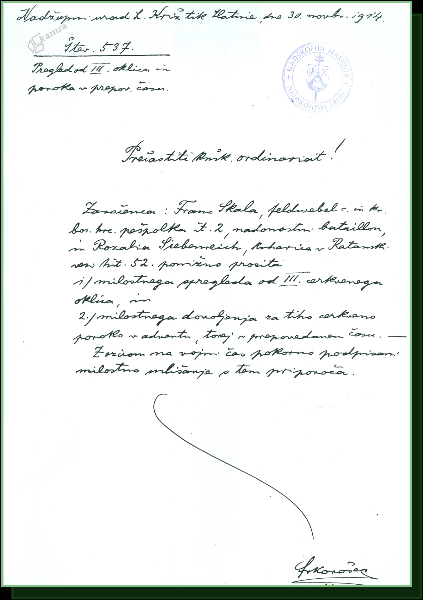 Nadžupni urad S. Križ tik Slatine, dne 30. novbr. 1914.
kamra
Štev. 537.
Pregled od III. oklica in
poroka v prepov. času.
Prečastiti knšk. ordinariat!
Zaročenca: Franc Skala, feldwebel v in kr.
bos. hrc. pešpolka št. 2, nadomestni bataillon,
in Rozalia Siebenreich, kuharica v Ratansk.
vas hšt. 52. ponižno prosita
1./ milostnega spregleda od III. cerkvenega
oklica, in
2./ milostnega dovoljenja za tiho cerkveno
poroko v adventu, torej v prepovedanem času. —
Z ozirom na vojni čas pokorno podpisani
milostno uslišanje s tem priporoča.